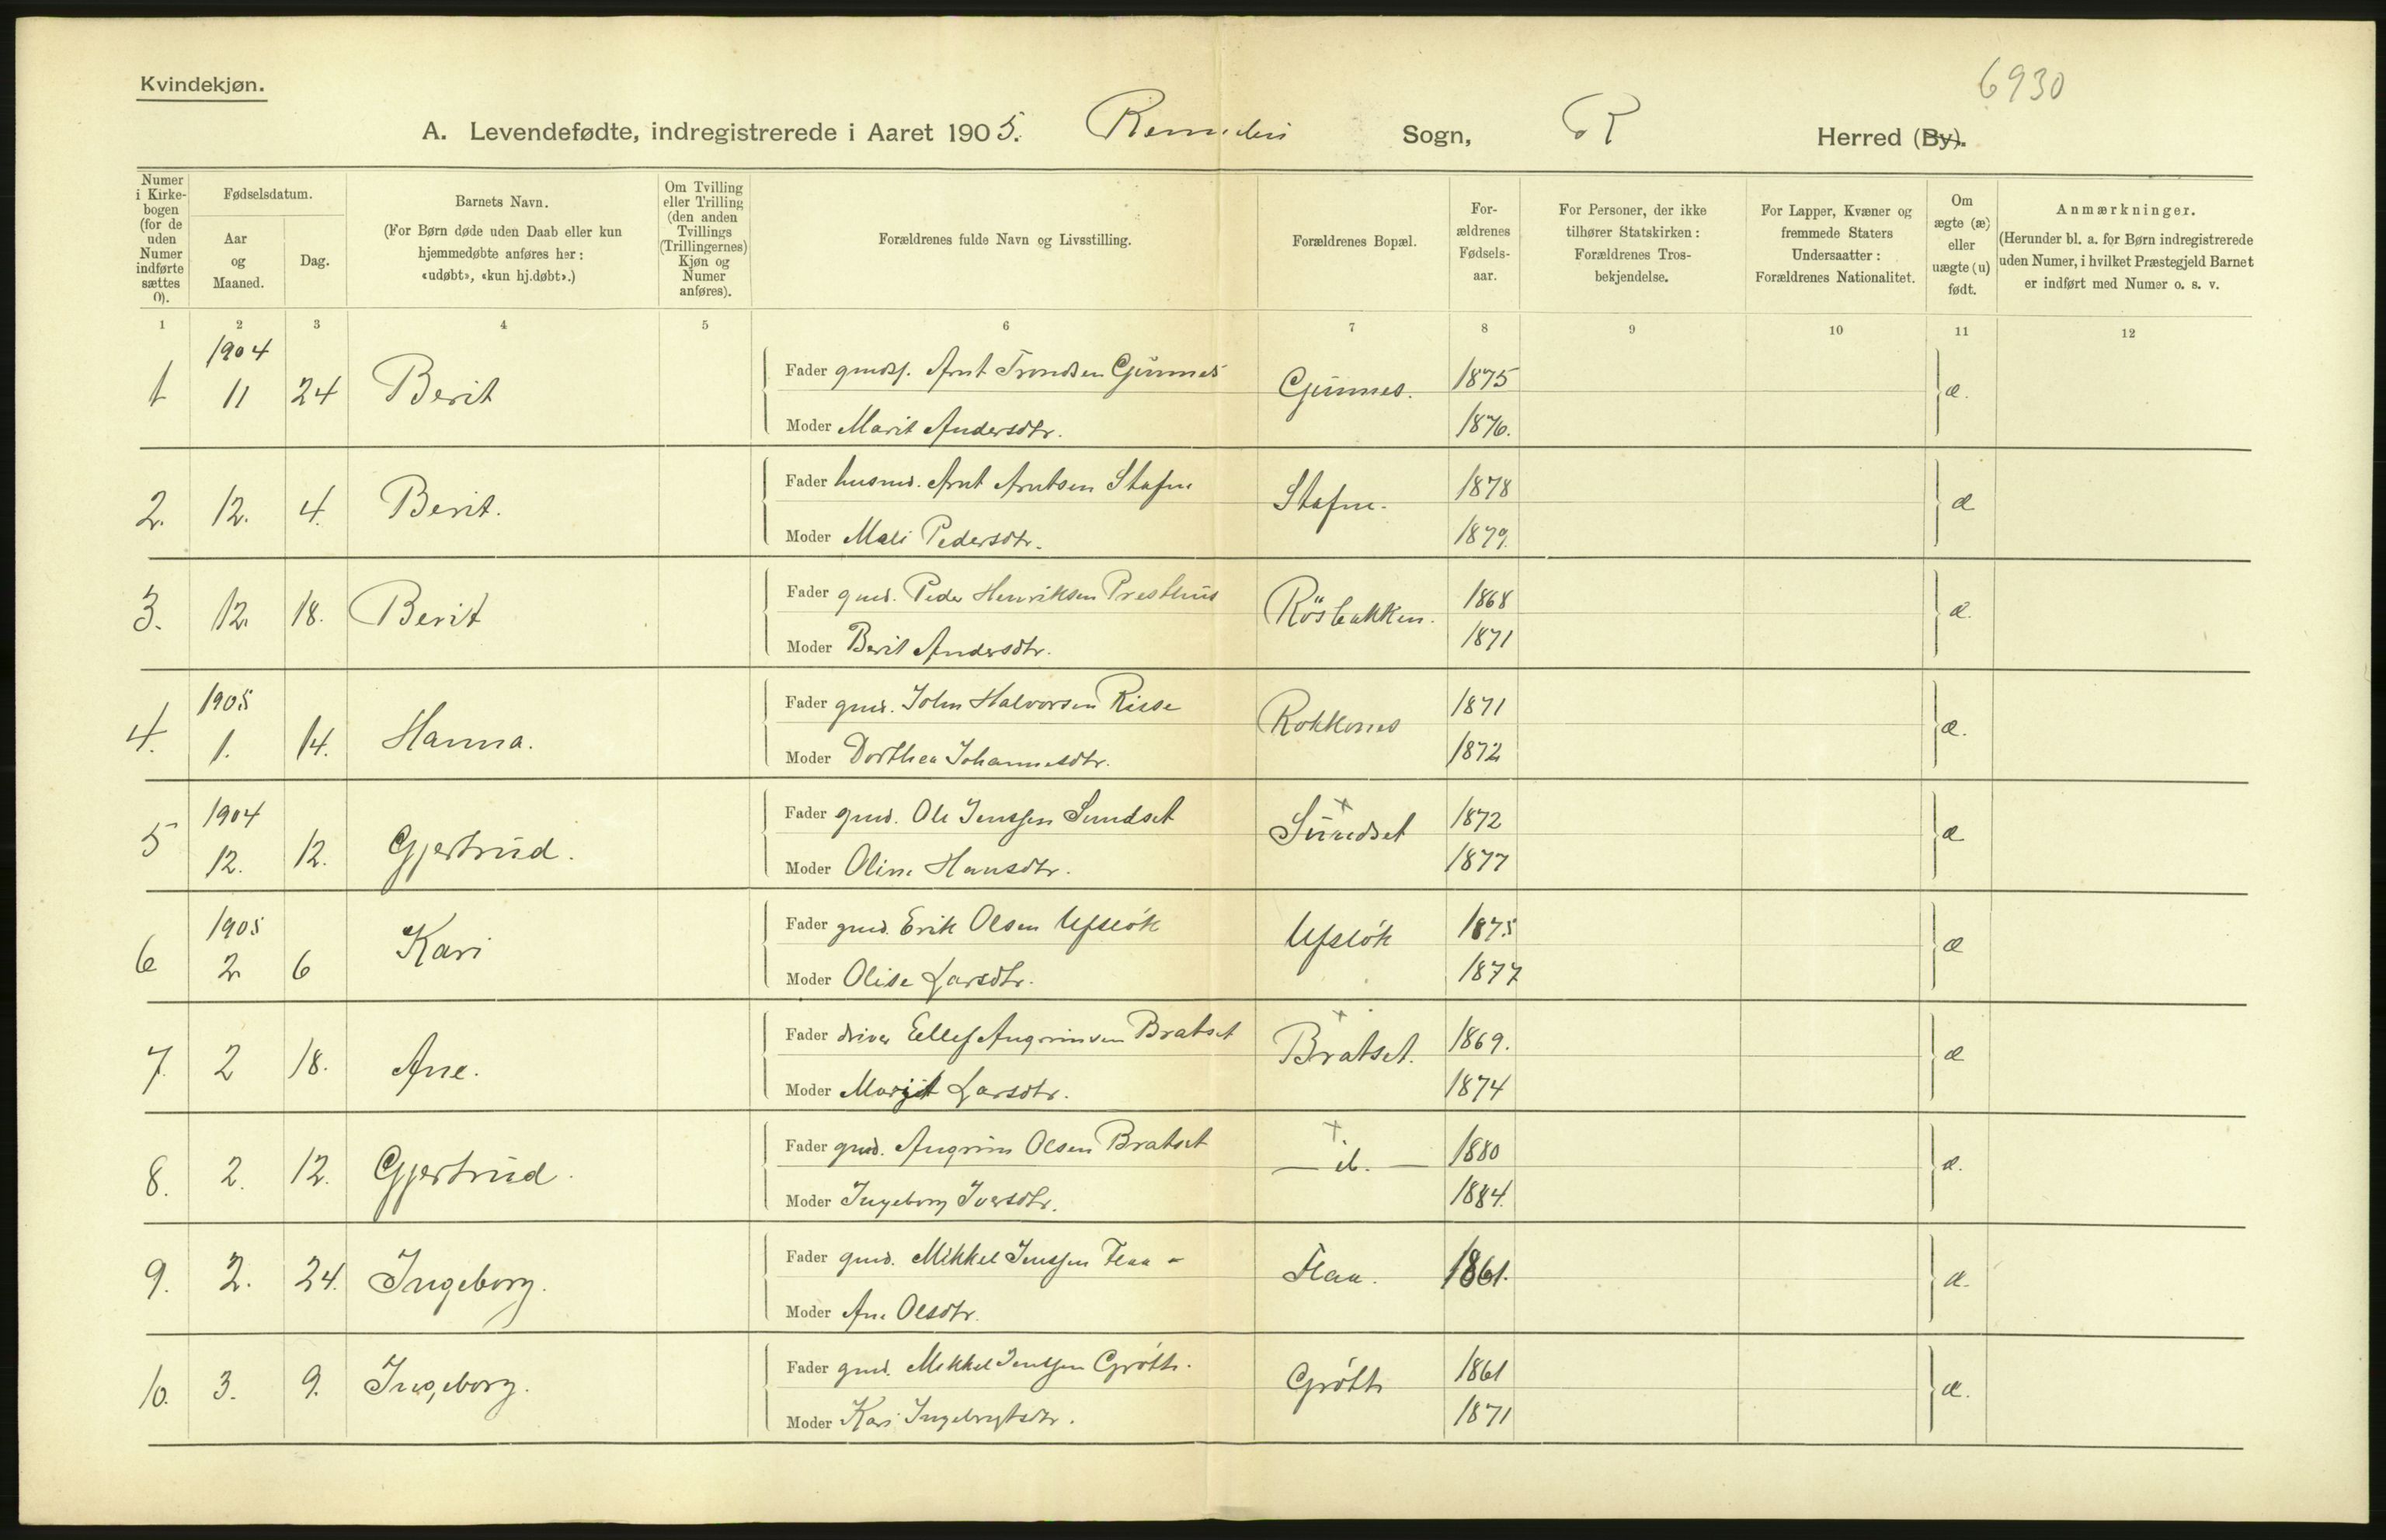 Kvindekjøn.
6930
A. Levendefødte, indregistrerede i Aaret 1905. Sogn, R Herred (By).
Numer i Kirkebogen (for de uden Numer indførte sættes 0).
Fødselsdatum.
Aar og Maaned.
Dag.
Barnets Navn.
(For Børn døde uden Daab eller kun hjemmedøbte anføres her: «udøbt», «kun hj.døbt».)
Om Tvilling eller Trilling (den anden Tvillings (Trillingernes) Kjøn og Numer anføres).
Forældrenes fulde Navn og Livsstilling.
Forældrenes Bopæl.
Forældrenes Fødselsaar.
For Personer, der ikke tilhører Statskirken: Forældrenes Trosbekjendelse.
For Lapper, Kvæner og fremmede Staters Undersaatter: Forældrenes Nationalitet.
Om ægte (æ) eller uægte (u) født.
Anmærkninger.
(Herunder bl. a. for Børn indregistrerede uden Numer, i hvilket Præstegjeld Barnet er indført med Numer o. s. v.
1 2 3 4 5 6 7 8 9 10 11 12
1904
1 11 24 Berit Fader Arnt Trondsen Gjinnes Gjinnes. 1875 æ.
Moder Marit Andersdtr. 1876.
2. 12. 4. Berit. Fader husmd. Arnt Arntsen Stafne Stafne. 1878 æ
Moder Mali Pedersdtr. 1879.
3. 12. 18. Berit Fader gmd. Peder Henriksen Presthus Rösbakken. 1868 æ.
Moder Berit Andersdtr. 1871
1905
4. 1. 14. Hanna. Fader gmd. John Halvorsen Risse Rokkones 1871 æ.
Moder Dorthea Johannesdtr. 1872
1904
5 12. 12. Gjertrud. Fader gmd. Ole Jenssen Sundset Sundset 1872 æ
Moder Oline Hansdtr. 1877
1905
6 2 6 Kari Fader gmd. Erik Olsen Ufslók Ufslók 1875 æ
Moder Olise Larsdtr. 1877
7. 2 18. Ane. Fader driver Ellef Angrimsen Bratset Bratset. 1869. æ
Moder Marit Larsdtr. 1874
8. 2. 12. Gjertrud. Fader gmd. Angrim Olsen Bratset — id. — 1880 æ.
Moder Ingeborg Iversdtr. 1884.
9. 2. 24. Ingeborg. Fader gmd. Mikkel Jenssen Flaa - Flaa. 1861. æ.
Moder Ane Olsdtr.
10. 3. 9. Ingeborg. Fader gmd. Mikkel Jentsen Grótte. Grótte 1861 æ.
Moder Kari Ingebrigtsdtr. 1871